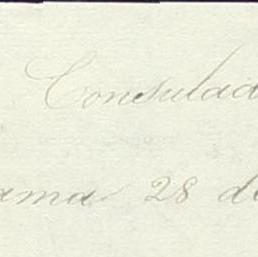 Consulad
ama 28 de